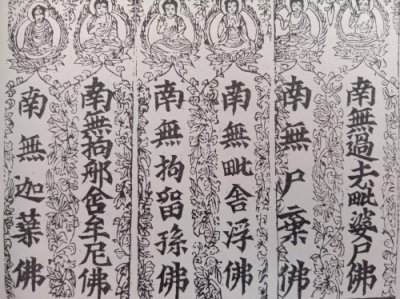 南無過去毗婆尸佛
南無尸棄佛
南無毗舍浮佛
南無拘留孫佛
南無拘那含牟尼佛
南無迦葉佛